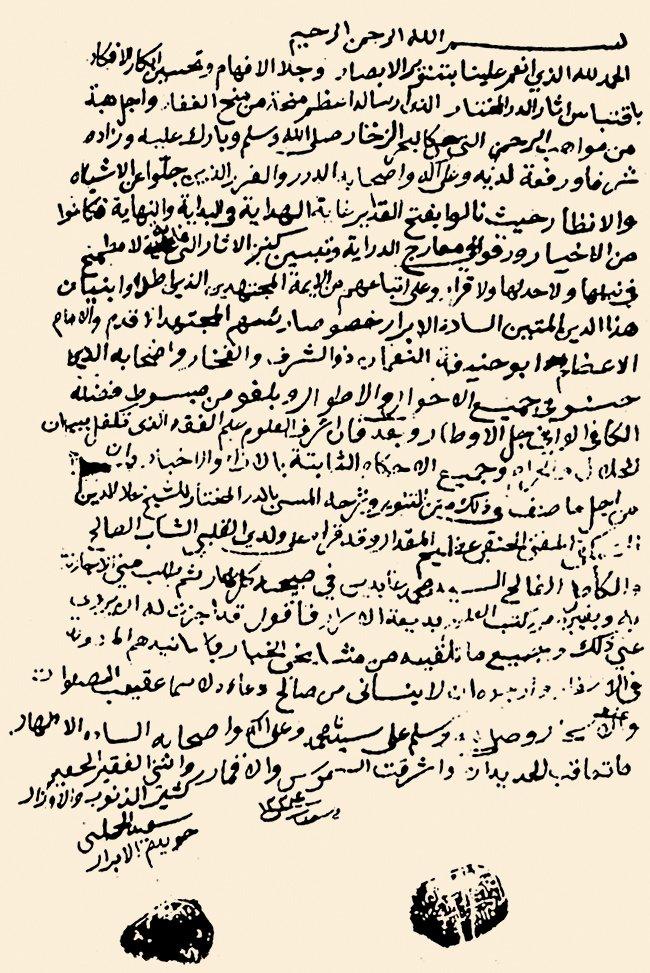 بسم الله الرحمن الرحيم
الحمد لله الذي انعم علينا بتنوير الابصار وجلا الافهام وتحسين ابكار الافكار
باقتباس اثار الدر المختار الذي رساله اعظم منحة من منح الغفار واجل هبة
من مواهب الرحمن التي البحر الزخار صلى الله وسلم وبارك عليه وزاده
شرفا ورفعة لديه وعلى آله واصحابه الدرر والغرر الذين جلوا عن الاشباه
والانظار حيث نالوا بفتح القدير غاية الهداية في البداية والنهاية فكانوا
من الاخيار ورقوا معارج الدراية وتبيين كنز الاثار التي لا مطمع
في نيلها ولاحد لها ولا قرار وعلى اتباعهم من الايمة المجتهدين الذين اطدوا بنيان
هذا الدين المتين السادة الابرار خصوصا رئيسهم المجتهد الاقدم والامام
الاعظم ابو حنيفة النعمان ذو الشرف والفخار واصحابه الذين
في جميع الاحوال والاطوار وبلغو من مبسوط فضله
الكافي الاوطار وبعد فان اشرف العلوم علم الفقه الذي تكفل ببيان
الحلال والحرام وجميع الاحكام الثابتة بالاثار والاخبار وان
من اجل ما صنف في ذلك متن التنوير وشرحه المسمى بالدر المختار للشيخ علاء الدين
المفتي الحنفي عظيم المقدار وقد قراه على ولدي القلبي الشاب الصالح
والكامل الفالح السيد محمد عابدين في صبيحة كل نهار ثم طلب مني الاجازة
به وبغيره من كتب العلم بديعة الاسرار فاقول قد اجزت له ان يروي
عني ذلك وجميع ما تلقيته من مشايخي الخيار باسانيدهم المدونة
في الاسفار وارجوه ان لا ينساني من صالح دعاءه لا سيما عقيب الصلوات
وصلى وسلم على سيدنا محمد وعلى آله واصحابه السادة الاطهار
ما تعاقب الجديدان واشرقت الشموس والاقمار وانني الفقير الحقير
كثير الذنوب والاوزار
سعيد الحلبي
خويدم الابرار